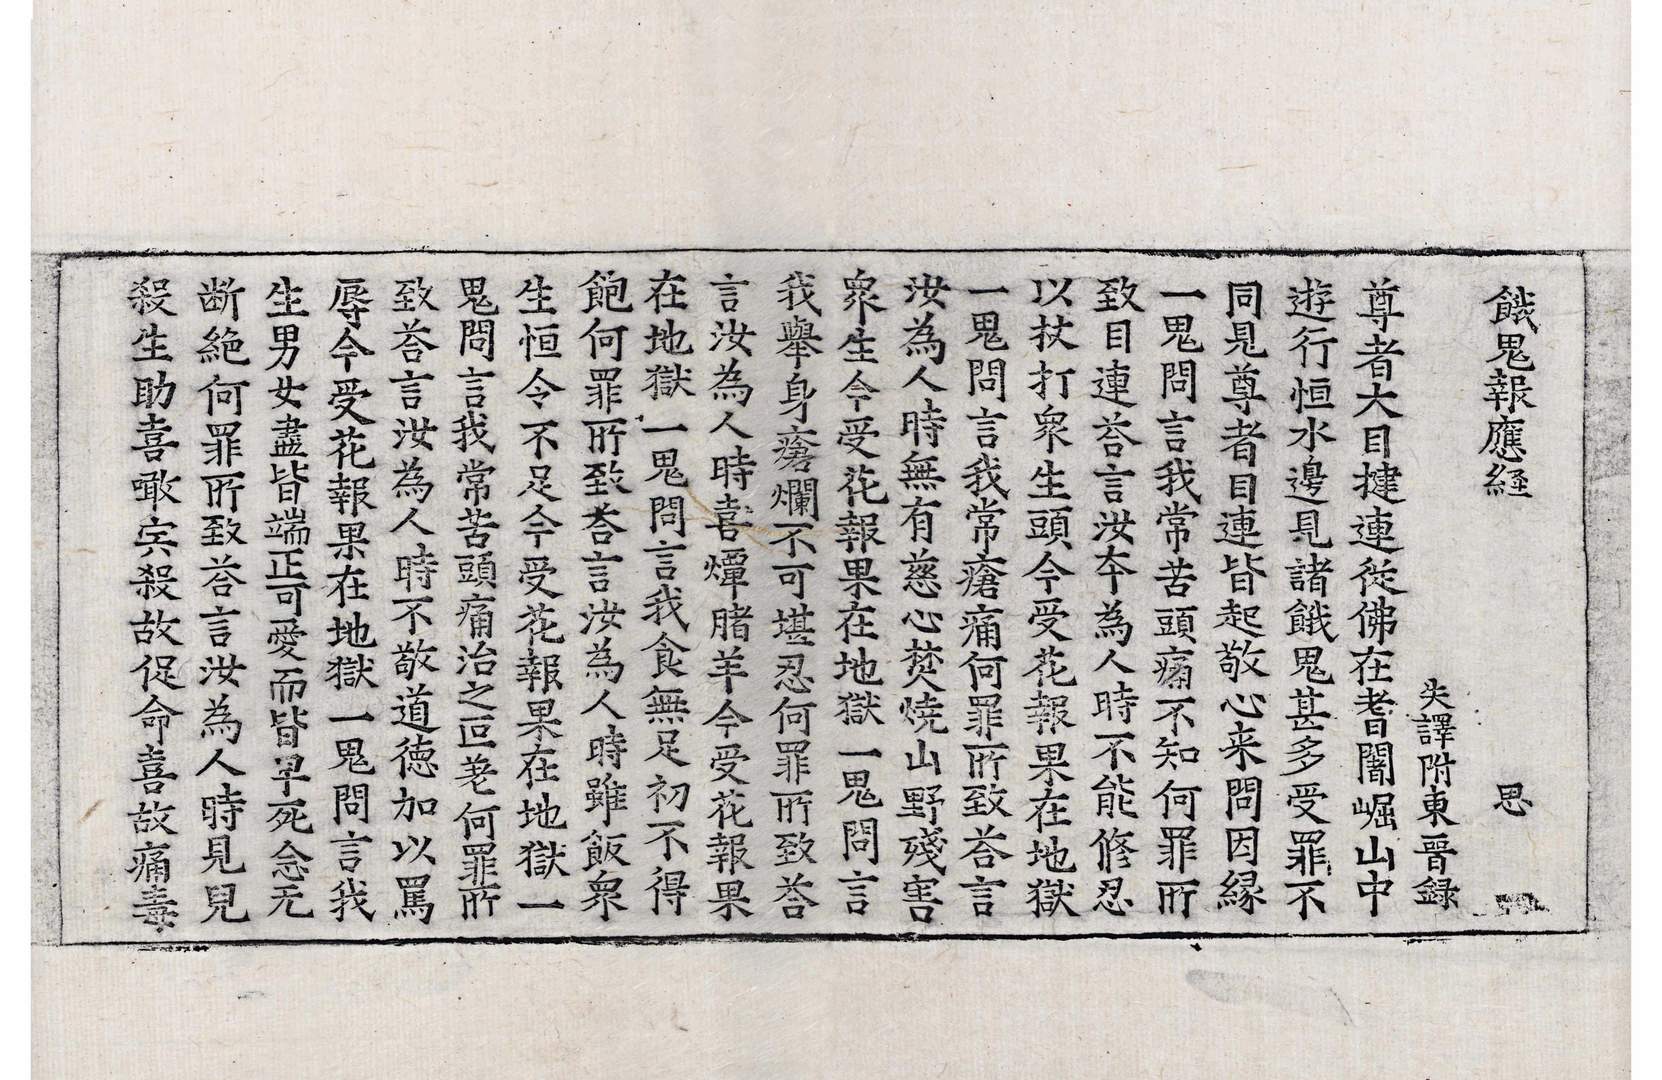 餓鬼報應経　思
失譯附東晉録
尊者大目揵連從佛在耆闍崛山中
遊行恒水邊見諸餓鬼甚多受罪不
同見尊者目連皆起敬心来問因縁
一鬼問言我常苦頭痛不知何罪所
致目連荅言汝夲為人時不能修忍
以杖打衆生頭今受花報果在地獄
一鬼問言我常瘡痛何罪所致荅言
汝為人時無有慈心焚燒山野殘害
衆生今受花報果在地獄一鬼問言
我舉身瘡爛不可堪忍何罪所致荅
言汝為人時喜燂腤羊今受花報果
在地獄一鬼問言我食無足初不得
飽何罪所致荅言汝為人時雖飯衆
生恒令不足今受花報果在地獄一
鬼問言我常苦頭痛治之叵差何罪所
致荅言汝為人時不敬道德加以罵
辱今受花報果在地獄一鬼問言我
生男女盡皆端正可愛而皆早死念无
断絶何罪所致荅言汝為人時見兒
殺生助喜噉宍殺故促命喜故痛毒